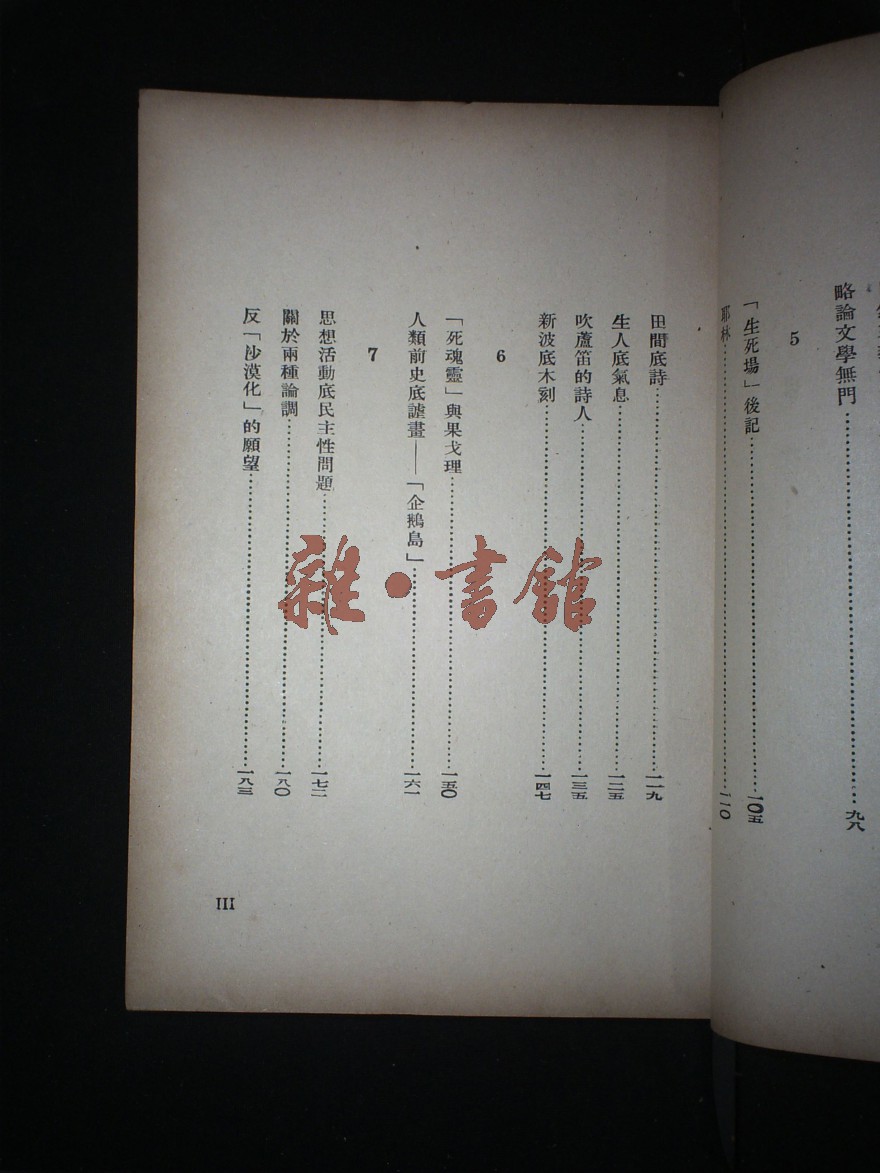 略論文學無門……九八
5
「生死場」後記……一〇五
耶林……一一〇
田間底詩……一一九
生人底氣息……一二五
吹蘆笛的詩人……一三五
新波底木刻……一四七
6
「死魂靈」與果戈理……一五〇
人類前史底謔畫——「企鵝島」……一六一
7
思想活動底民主性問題……一七二
關於兩種論調……一八〇
反「沙漠化」的願望……一八三
III
雜·書館